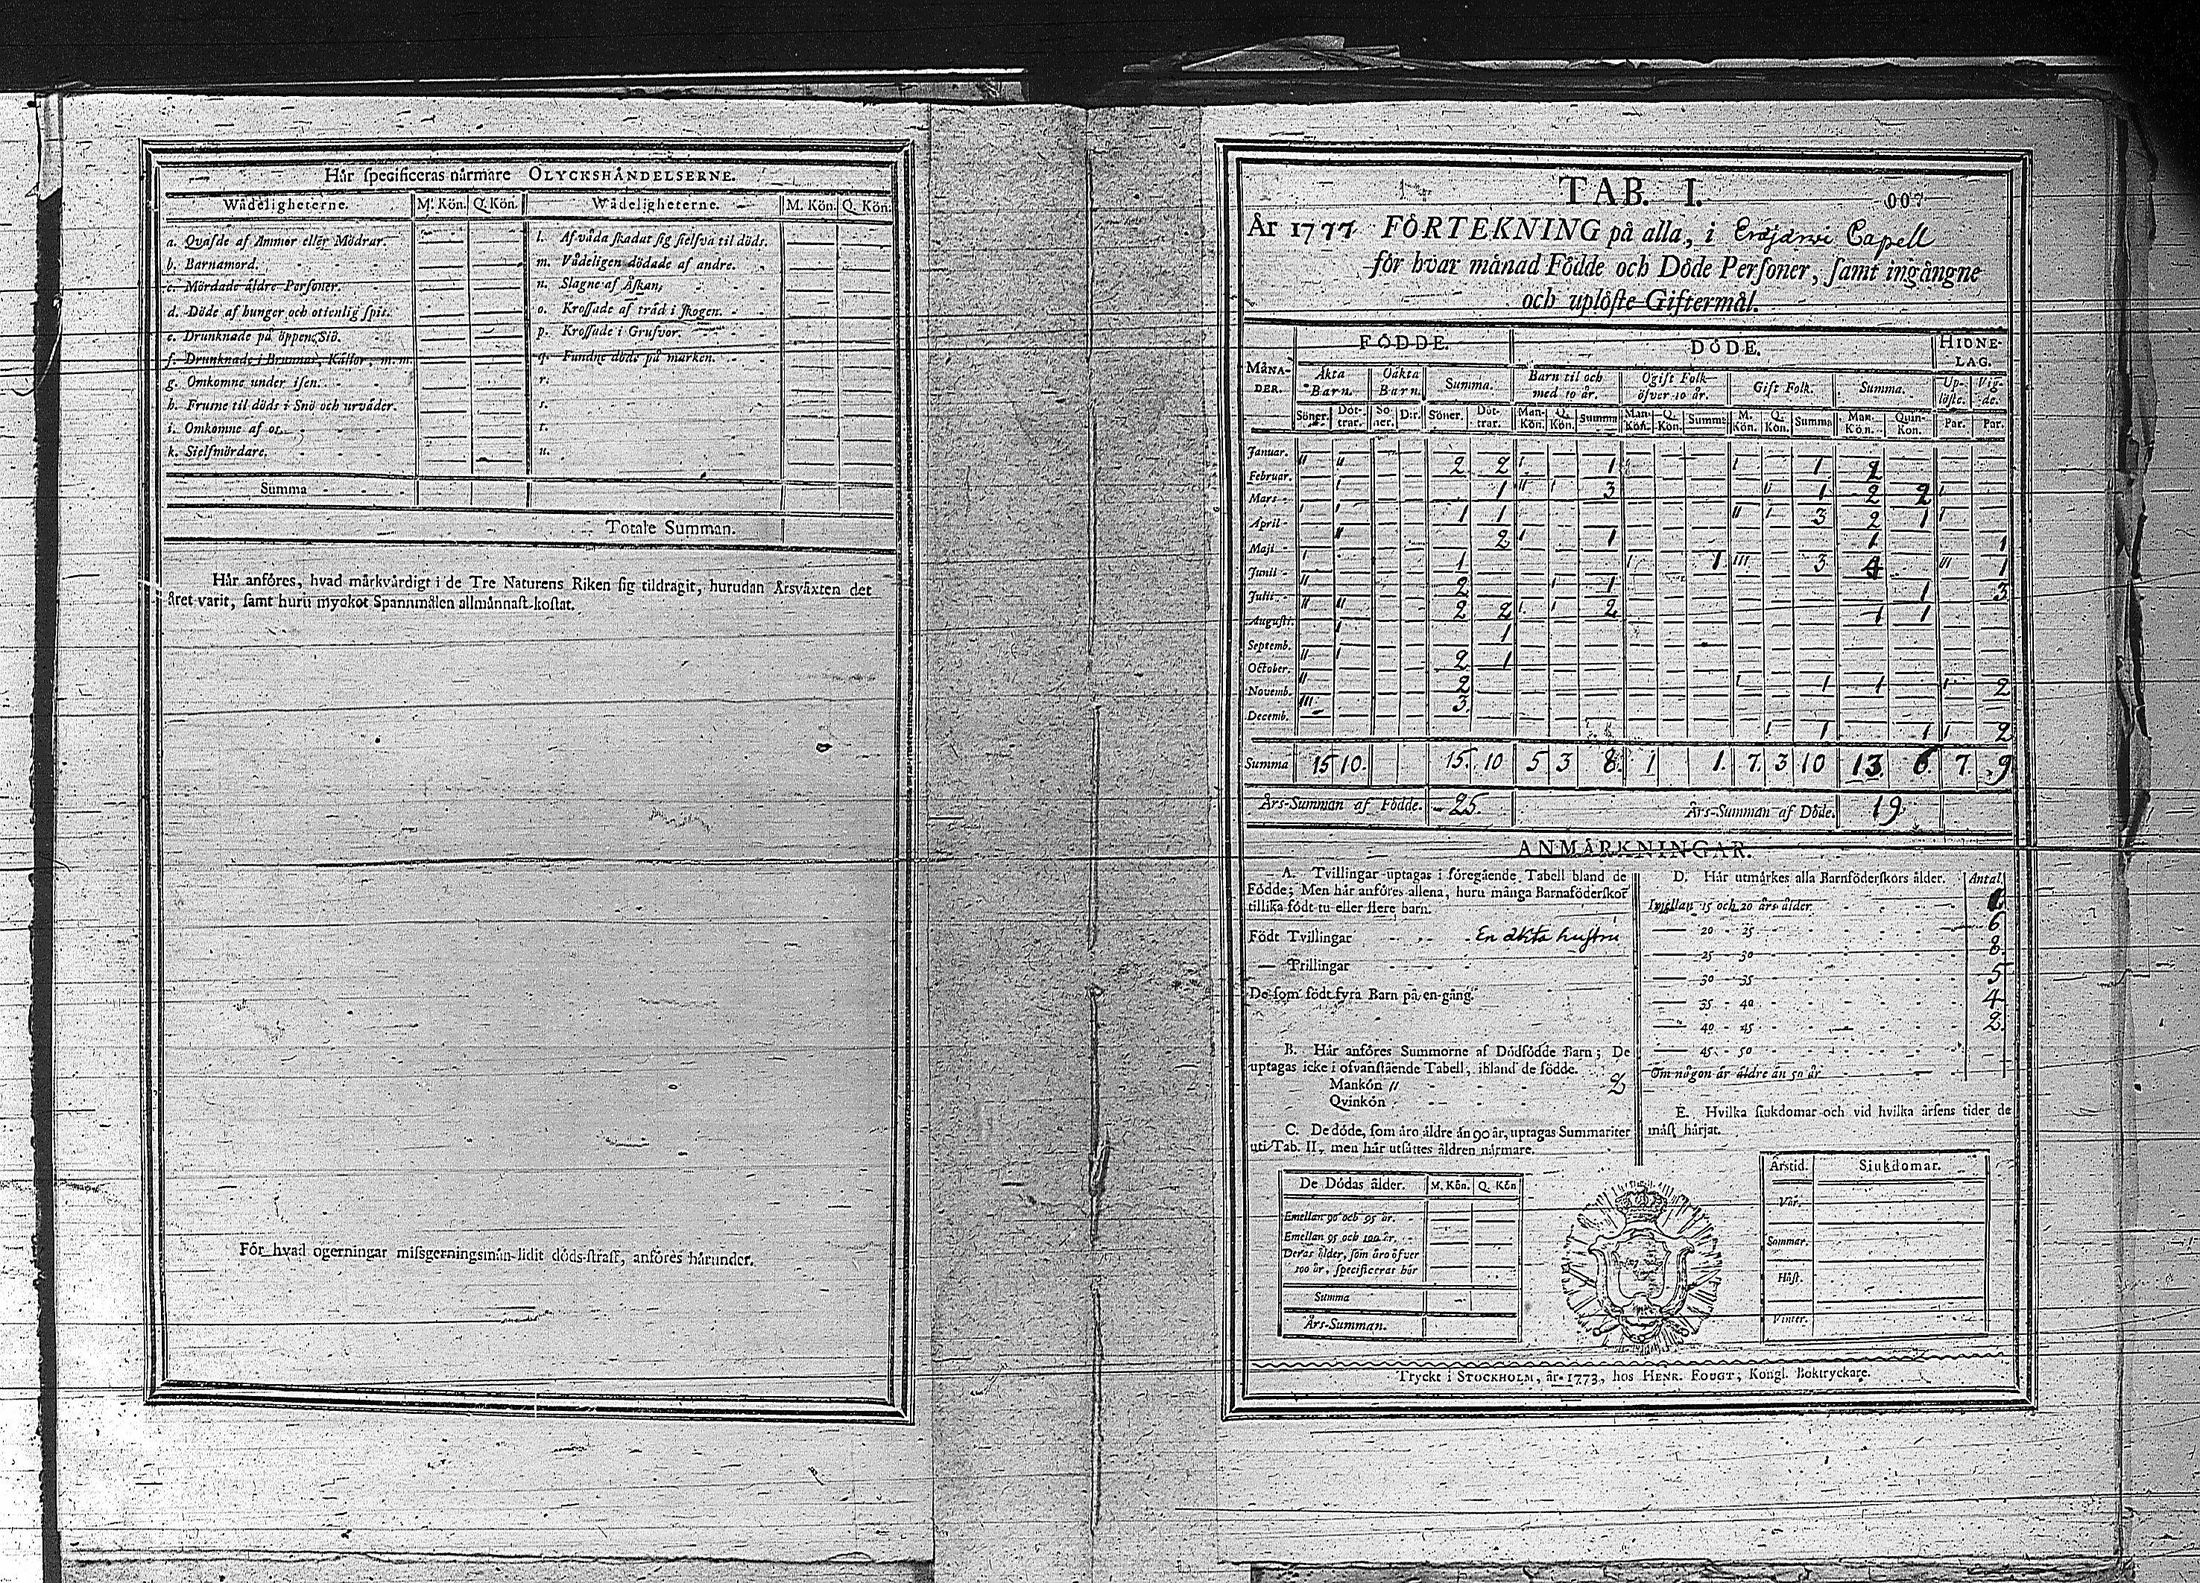 Hår specificeras nårmare OLYCKSHÅNDELSERNE.
Wådeligheterne. M. Kön. Q. Kön. Wådeligheterne. M. Kön. Q. Kön.
a. Qvafde af Ammor eller Mödrar. l. Af våda skadat sig sielfva til döds.
b. Barnamord. m. Vådeligen dödade af andre.
c. Mördade åldre Personer. n. Slagne af Åskan.
d. Döde af hunger och otienlig spis. o. Krossade af tråd i skogen.
e. Drunknade på öppen Siö. p. Krossade i Grufvor.
f. Drunknade i Brunnar, Kållor, m.m. q. Fundne döde på marken.
g. Omkomne under isen. r.
h. Frusne til döds i Snö och urvåder. s.
i. Omkomne af os. t.
k. Sielfmördare. u.
Summa
Totale Summan.
Hår anföres, hvad mårkvårdigt i de Tre Naturens Riken sig tildragit, hurudan Årsvåxten det
året varit, samt huru myckot Spannmålen allmånnast kostat.
För hvad ogerningar missgerningsmån lidit döds-straff, anföres hårunder.
TAB. I. 007
År 1777 FÖRTEKNING på alla, i Eräjärvi Capell
för hvar månad Födde och Döde Personer, samt ingångne
och uplöste Giftermål.
MÅNADER. FÖDDE. DÖDE. HIONELAG.
Åkta Barn. Oåkta Barn. Summa. Barn til och med 10 år. Ogift Folk öfver 10 år. Gift Folk. Summa. Uplöste. Vigde.
Söner. Döttrar. Söner. Dr. Söner. Döttrar. Man-Kön. Q. Kön. Summa Man-Kön. Q. Kön. Summa M. Kön. Q. Kön. Summa Man-Kön. Quin-kon. Par. Par.
Januar. " " 2 2 ' 1 ' 1 2
Februar. ' 1 " ' 3 " 1 2 2 '
Mars ' ' 1 1 " ' 3 2 1 '
April " 2 ' 1 1 1
Maji ' 1 ' 1 ''' 3 4 " 1
Junii " 2 ' 1 1 3
Julii " " 2 2 ' ' 2 1 1
Augusti ' 1
Septemb. " ' 2 1
October. " 2 ' 1 1 ' 2
Novemb. ''' 3.
Decemb. ' 1 1 ' 2
Summa 15 10. 15. 10 5 3 8. 1 1. 7. 3 10 13. 6. 7. 9
Års-Summan af Födde. 25. Års-Summan af Döde. 19.
ANMÅRKNINGAR.
A. Tvillingar uptagas i föregående Tabell bland de
Födde; Men hår anföres allena, huru många Barnaföderskor
tillika födt tu eller flere barn.
Födt Tvillingar En äkta hustru
— Trillingar
De som födt fyra Barn på en gång.
B. Hår anföres Summorne af Dödfödde Barn; De
uptagas icke i ofvanstående Tabell, ibland de födde.
Mankön " 2
Qvinkön
C. De döde, som åro åldre ån 90 år, uptagas Summariter
uti Tab. II, men hår utsåttes åldren nårmare.
De Dödas ålder. M. Kön. Q. Kön
Emellan 90 och 95 år.
Emellan 95 och 100 år.
Deras ålder, som åro öfver
100 år, specificerat hår
Summa
Års-Summan.
D. Hår utmårkes alla Barnföderskors ålder. Antal
Imellan 15 och 20 års ålder
— 20 - 25 6
— 25 - 30 8.
— 30 - 35 5
— 35 - 40 4
— 40 - 45 2.
— 45 - 50 —
Om någon år åldre ån 50 år
E. Hvilka siukdomar och vid hvilka årsens tider de
måst hårjat.
Årstid. Siukdomar.
Vår.
Sommar.
Höst.
Vinter.
Tryckt i STOCKHOLM, år 1773, hos HENR. FOUGT, Kongl. Boktryckare.